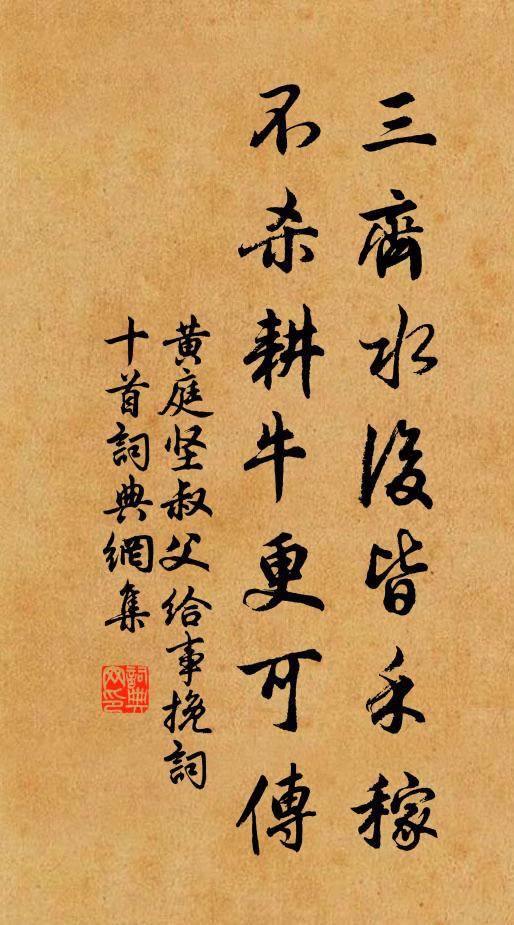 三齊水後皆禾稼
不殺耕牛更可傳
黄庭坚叔父给事挽詞
十首詞典網集
詞典網印